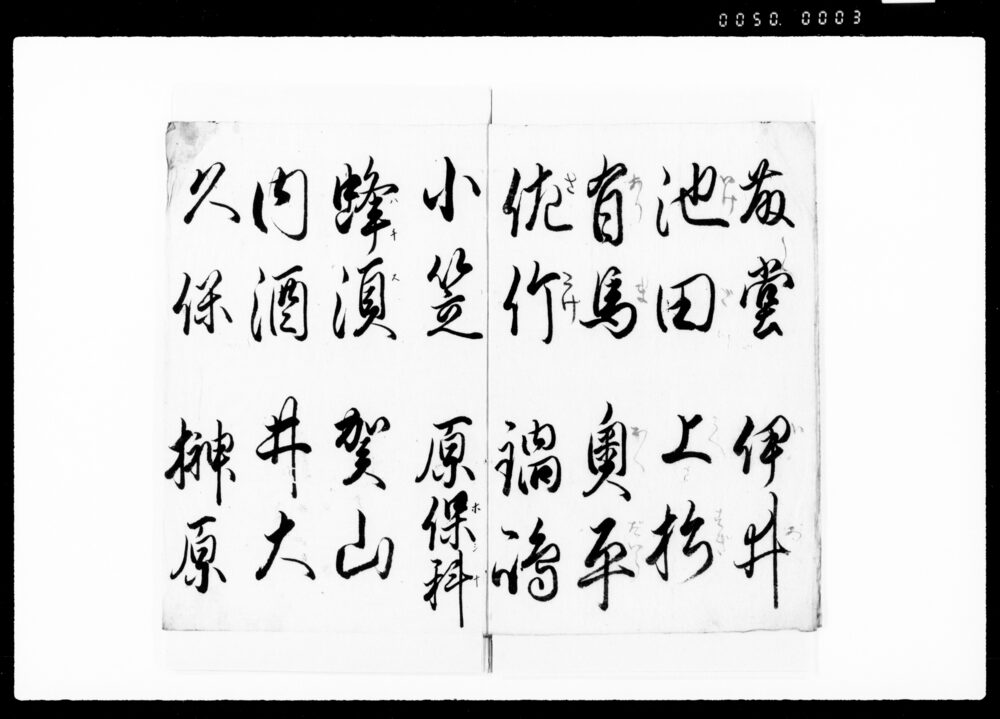 0050. 0003
藤堂 伊井
池田 上杉
有馬 奥平
佐竹 鍋嶋
小笠原 保科
蜂須賀 山
内 酒井 大
久保 榊原